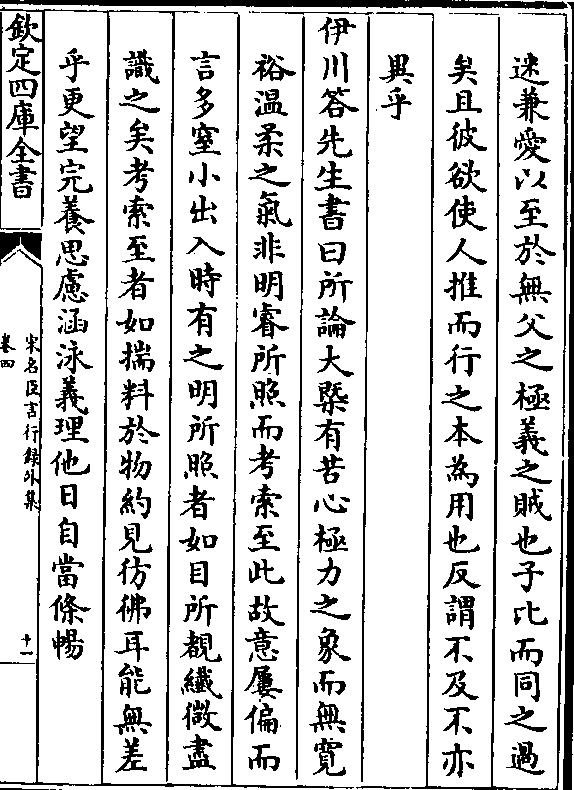 迷兼愛以至於無父之極義之賊也子比而同之過
矣且彼欲使人推而行之本為用也反謂不及不亦
異乎
伊川答先生書曰所論大槩有苦心極力之象而無寛
裕溫柔之氣非明睿所照而考索至此故意屢偏而
言多窒小出入時有之明所照者如目所覩纖微盡
識之矣考索至者如揣料於物約見彷彿耳能無差
乎更望完養思慮涵泳義理他日自當條暢
欽定四庫全書
宋名臣言行録外集
卷四
十一